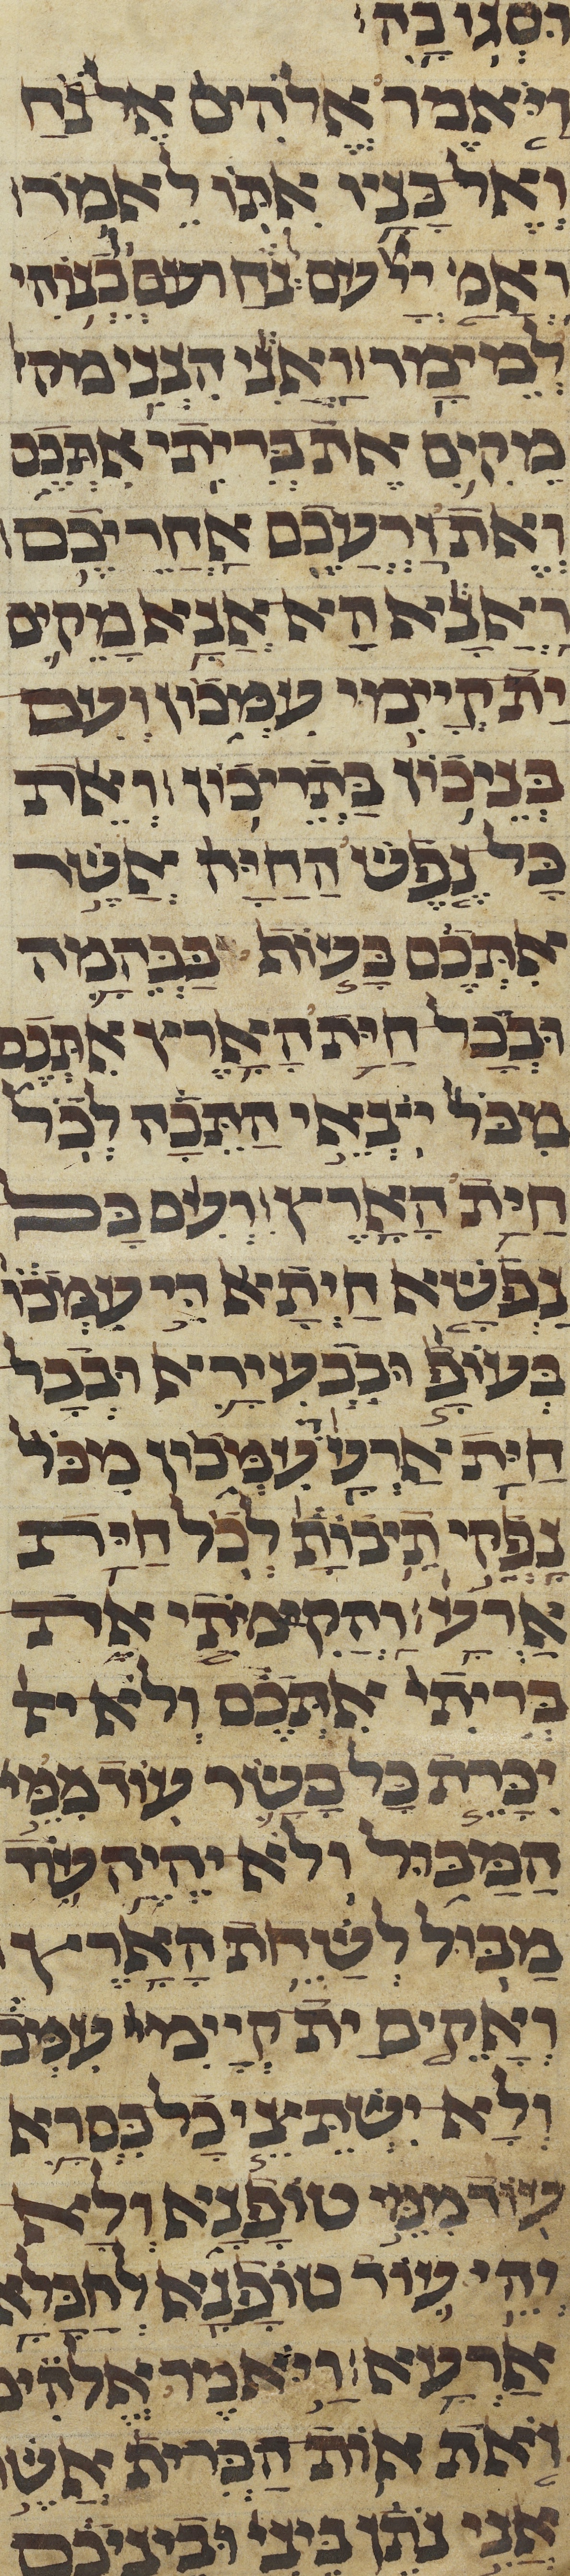 וּסְגוּ בַהּ׃
וַיֹּאמֶר אֱלֹהִים אֶל נֹחַ
וְאֶל בָּנָיו אִתּוֹ לֵאמֹר׃
וַאֲמַר יי לְעִם נֹחַ וְעִם בְּנוֹהִי
לְמֵימָר׃ וַאֲנִי הִנְנִי מקי
מֵקִים אֶת בְּרִיתִי אִתְּכֶם
וְאֶת זַרְעֲכֶם אַחֲרֵיכֶם׃
וַאֲנָא הָא אֲנָא מֵקִים
יָת קְיָימִי עִמְּכוֹן וְעִם
בְּנֵיכוֹן בָּתְרֵיכוֹן׃ וְאֵת
כָּל נֶפֶשׁ הַחַיָּה אֲשֶׁר
אִתְּכֶם בָּעוֹף בַּבְּהֵמָה
וּבְכָל חַיַּת הָאָרֶץ אִתְּכֶם
מִכֹּל יֹצְאֵי הַתֵּבָה לְכֹל
חַיַּת הָאָרֶץ׃ וְעִם כָּל
נַפְשָׁא חַיְתָא דִּי עִמְּכוֹן
בְּעוֹפָא וּבִבְעִירָא וּבְכָל
חַיַּת אַרְעָא עִמְּכוֹן מִכֹּל
נָפְקֵי תֵיבוּתָא לְכֹל חַיַּת
אַרְעָא׃ וַהֲקִמֹתִי אֶת
בְּרִיתִי אִתְּכֶם וְלֹא יִ
יִכָּרֵת כָּל בָּשָׂר עוֹד מִמֵּי
הַמַּבּוּל וְלֹא יִהְיֶה עוֹד
מַבּוּל לְשַׁחֵת הָאָרֶץ׃
וַאֲקִים יָת קְיָימִי עִמְּכ
וְלָא יִשְׁתֵּיצֵי כָל בִּסְרָא
עוֹד מִמֵּי טוֹפָנָא וְלָא
יְהֵי עוֹד טוֹפָנָא לְחַבָּלָא
אַרְעָא׃ וַיֹּאמֶר אֱלֹהִים
זֹאת אוֹת הַבְּרִית אֲשֶׁר
אֲנִי נֹתֵן בֵּינִי וּבֵינֵיכֶם